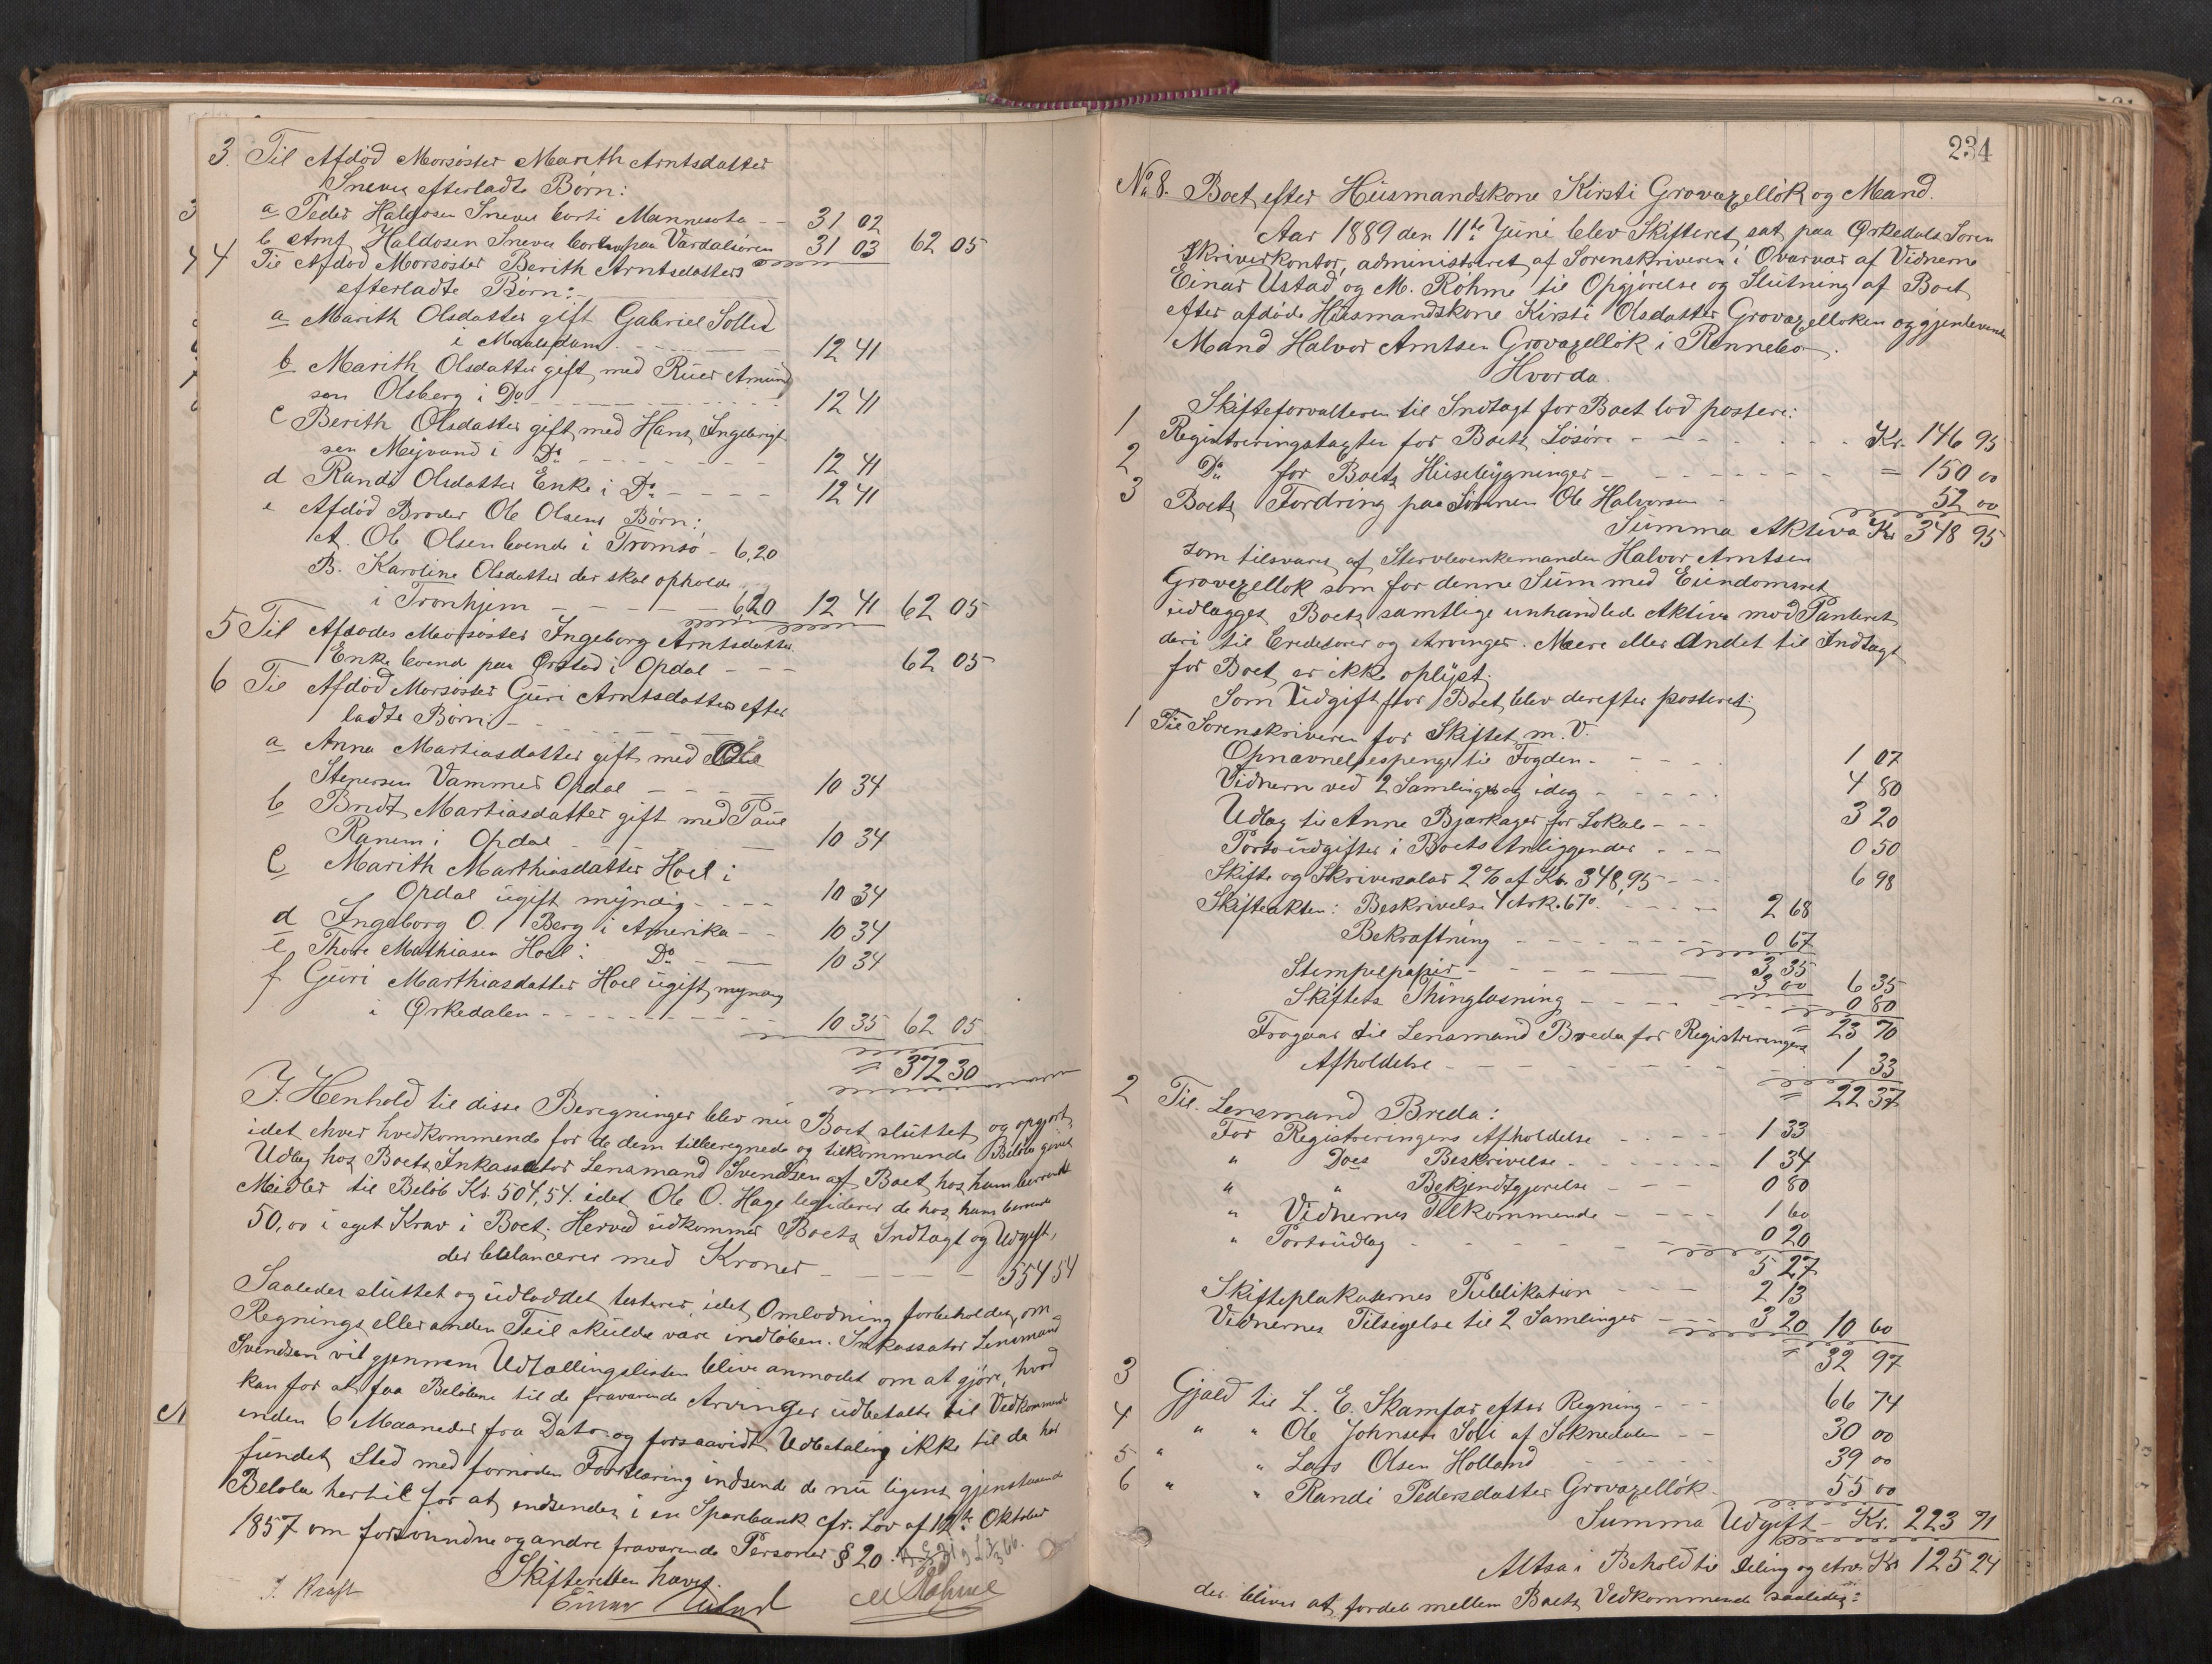 3. Til Afdöd Morsöster Marith Arntsdatter
Snever efterladte Börn:
a Peder Haldosen Snever borti Mannesota -- 31 02
b Arnt Haldosen Snever bortepaa Værdalsören 31 03 62 05
4 Til Afdöd Morsöster Berith Arntsdatters
efterladte Börn:
a Marith Olsdatter gift Gabriel Sollid
i Maalsdum 12 41
b Marith Olsdatter gift med Ruer Amund
sen Olsberg i Do 12 41
c Berith Olsdatter gift med Hans Ingebrigt
sen Mejvand i Do 12 41
d Randi Olsdatter Enke i Do 12 41
e Afdöd Broder Ole Olsens Börn:
A. Ole Olsen boende i Tromsö - 6,20
B. Karoline Olsdatter der skal opholde
i Tronhjem - 6 20 12 41 62 05
5 Til Afdödes Morsöster Ingeborg Arntsdatter
Enke boend paa Örstad i Opdal - 62 05
6 Til Afdöd Morsöster Guri Arntsdatters efter
ladte Börn: -
a Anna Martiasdatter gift med Ole
Stenersen Vammer Opdal 10 34
b Brndt Martiasdatter gift med Paul
Ranem i Opdal 10 34
c Marith Marthiasdatter Hoel i
Opdal ugift myndig 10 34
d Ingeborg O. Berg i Amerika -- 10 34
e Thore Mathiasen Hoel i Do 10 34
f Guri Marthiasdatter Hoel ugift myndig
i Ørkedalen 10 35 62 05
= 372 30
I. Henhold til disse Beregninger blev nu Boet sluttet og opgjort,
idet ehver hvedkommende for de dem tilberegnede og tilkommende Belöb givet
Udlæg hos Boets Inkassator Lensmand Svendsen af Boet hos ham beroende
Midler til Belöb Kr. 504,54. idet Ole O. Hage leqviderer de hos ham beroende
50,00 i eget Krav i Boet. Herved udkommer Boets Indtægt og Udgift,
der balancerer med Kroner - 554 54
Saaledes sluttet og udloddet testeres, idet Omlodning forbeholdes, om
Regnings eller anden Feil skulde være indlöben. Inkassator Lensmand
Svendsen vil gjennem Udtællingslisten blive anmodet om at gjöre, hvad
kan for at faa Belöbene til de fraværende Arvinger udbetalte til Vedkommende
inden 6 Maaneder fra Dato og forsaavidt Udbetaling ikke til da har
fundet Sted med fornöden Forklaring indsende de nu ligens gjenstaaende
Belöbe hertil for at indsendes i en Sparebank cfr. Lov af 12te Oktober
1857 om forsvundne og andre fraværende Personer § 20.
Skifteretten hævet.
J. Kraft Einar Ustad M Röhme
234
No 8. Boet efter Husmandskone Kirsti Grovazellök og Mand.
Aar 1889 den 11te Juni blev Skifteret sat paa Ørkedals Soren
skriverkontor, administreret af Sorenskriveren i Overvær af Vidnerne
Einar Ustad og M. Röhme til Opgjörelse og Slutning af Boet
efter afdöde Husmandskone Kirsti Olsdatter Grovazelloken og gjenlevende
Mand Halvor Arntsen Grovazellök i Rennebo.
Hvorda.
Skifteforvalteren til Indtægt for Boet lod postere:
1 Registreringstagten for Boets Lösöre - Kr. 146 95
2 Do for Boets Husebygninger - = 150 00
3 Boets Fordring paa Sönnen Ole Halvorsen - 52 00
Summa Aktiva Kr 348 95
som tilsvares af Stervboenkemanden Halvor Arntsen
Grovezellok som for denne Sum med Eiendomsret
udlægges Boets samtlige unhandlede Aktiva mod Panteret
deri til Credetorer og Arvinger. Meere eller Andet til Indtægt
for Boet er ikke oplyst.
Som Udgift for Boet blev derefter posteret:
1 Til Sorenskriveren for Skiftet m. V.
Opnævnelsespenge til Fogden - 1 07
Vidnern ved 2 Samlinger og idag - 4 80
Udlæg til Anne Bjærkager for Lokale - 3 20
Portoudgifter i Boets Anliggender - 0 50
Skifte og Skriversalar 2% af Kr. 348,95 - 6 98
Skifteakten: Beskrivelse 4 Ark. 67o. - 2 68
Bekræftning - 0 67
3 35
Stempelpapir - 3 00 6 35
Skiftets Thinglæsning - 0 80
= 23 70
Fragaar til Lensmand Breda for Registreringens
Afholdelse - 1 33
= 22 37
2 Til. Lensmand Breda:
For Registreringens Afholdelse - 1 33
" Does Beskrivelse - 1 34
" " Bekjendtgjorelse - 0 80
" Vidnernes Tilkommende - 1 60
" Portoudlæg - 0 20
5 27
Skifteplakaternes Publikation 2 13
Vidnernes Tilsigelse til 2 Samlinger - 3 20 10 60
= 32 97
3 Gjæld til L. E. Skamfær efter Regning - 66 74
4 " " Ole Johnsen Soli af Soknedalen - 30 00
5 " " Lars Olsen Holland 39 00
6 " " Randi Pedersdatter Grovazellök. 55 00
Summa Udgift - Kr. 223 71
Altsa i Behold til Deling og Arv. Kr 125 24
der bliver at fordele mellem Boets Vedkommende saaledes: